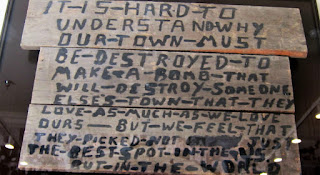 IT-IS-HARD-TO
UNDERSTANDWHY
OUR-TOWN-MUST
BE-DESTROYED-TO
MAKE-A-BOMB-THAT
WILL-DESTROY-SOMEONE
ELSES-TOWN-THAT-THEY
LOVE-AS-MUCH-AS-WE-LOVE
OURS — BUT-WE-FEEL-THAT
THEY-PICKED-NOT JUST
THE-BEST-SPOT-IN-THE-U.S.
BUT-IN-THE-WORLD